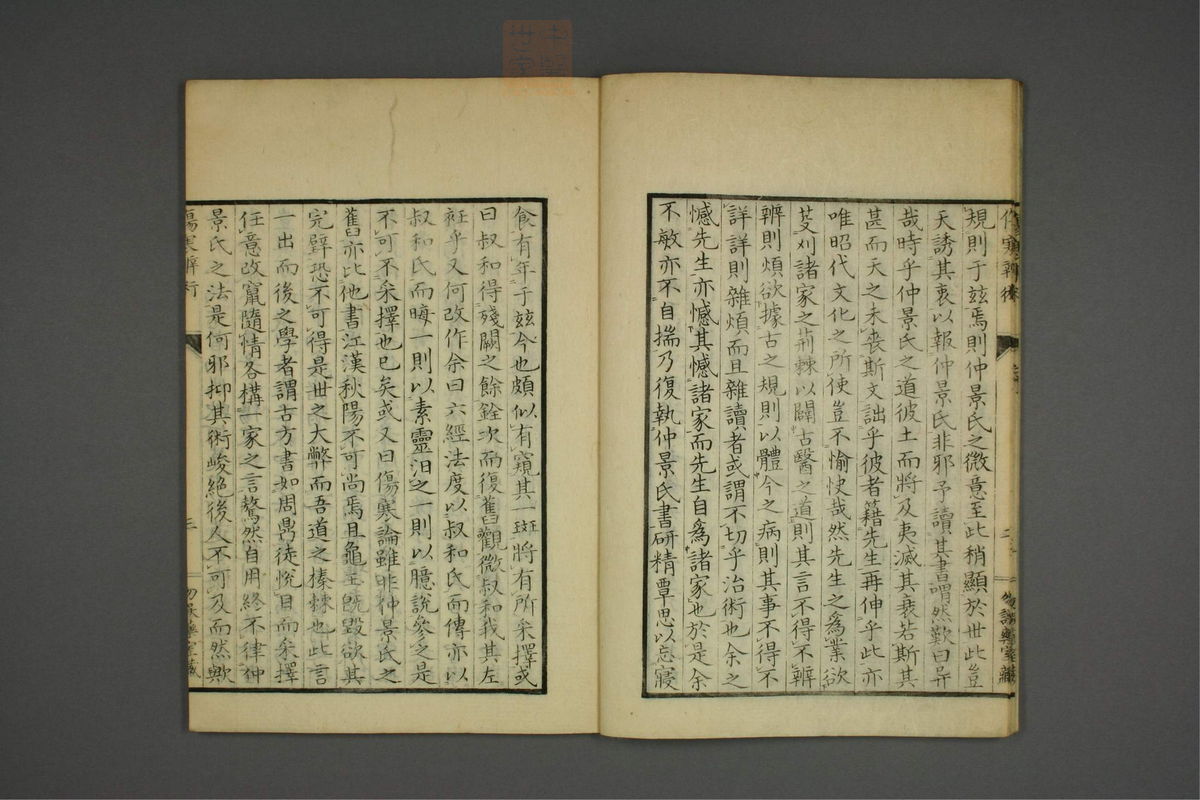 規則于茲焉則仲景氏之微意至此稍顯於世此豈
天誘其衷以報仲景氏非邪予讀其書喟然歎曰異
哉時乎仲景氏之道彼土而將及夷滅其衰若斯其
甚而天之未喪斯文詘乎彼者籍先生再伸乎此亦
唯昭代文化之所使豈不愉快哉然先生之為業欲
芟刈諸家之荊棘以闢古醫之道則其言不得不辨
辨則煩欲據古之規則以體今之病則其事不得不
詳詳則雜煩而且雜讀者或謂不切乎治術也余之
憾先生亦憾其憾諸家而先生自為諸家也於是余
不敏亦不自揣乃復執仲景氏書研精覃思以忘寢
食有年于茲今也頗似有窺其一斑將有所采擇或
曰叔和得殘闕之餘銓次而復舊觀微叔和我其左
衽乎又何改作余曰六經法度以叔和氏而傳亦以
叔和氏而晦一則以素靈汨之一則以臆說參之是
不可不采擇也已矣或又曰傷寒論雖非仲景氏之
舊亦比他書江漢秋陽不可尚焉且龜玉既毀欲其
完璧恐不可得是世之大弊而吾道之榛棘也此言
一出而後之學者謂古方書如周鼎徒悅目而采擇
任意改竄隨情各構一家之言驁然自用終不律仲
景氏之法是何邪抑其術峻絕後人不可及而然歟
三